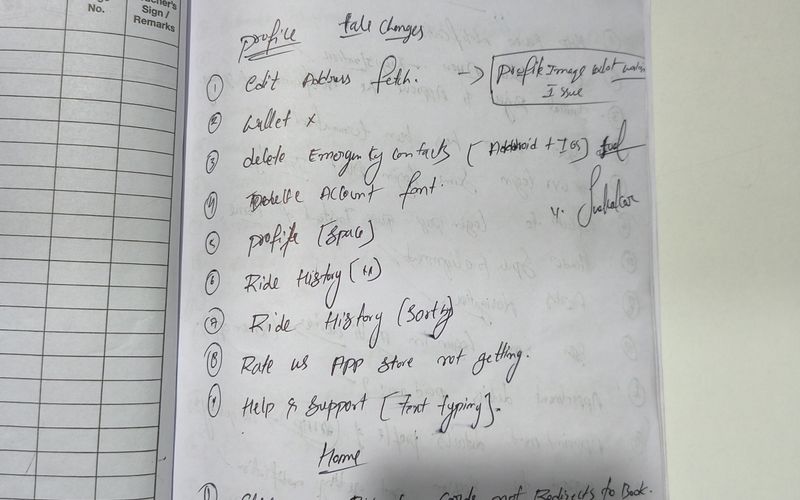 No.
Sign /
Remarks
profile tale changes
① Edit Address fetch. -> [profile Image Issue]
② wallet x
③ delete Emergency contacts [Android + IOS]
④ Delete Account font.
⑤ profile [space]
⑥ Ride History [
⑦ Ride History (Sort by)
⑧ Rate us App store not getting.
⑨ Help & Support [Text typing].
Home
not Redirects to Book.